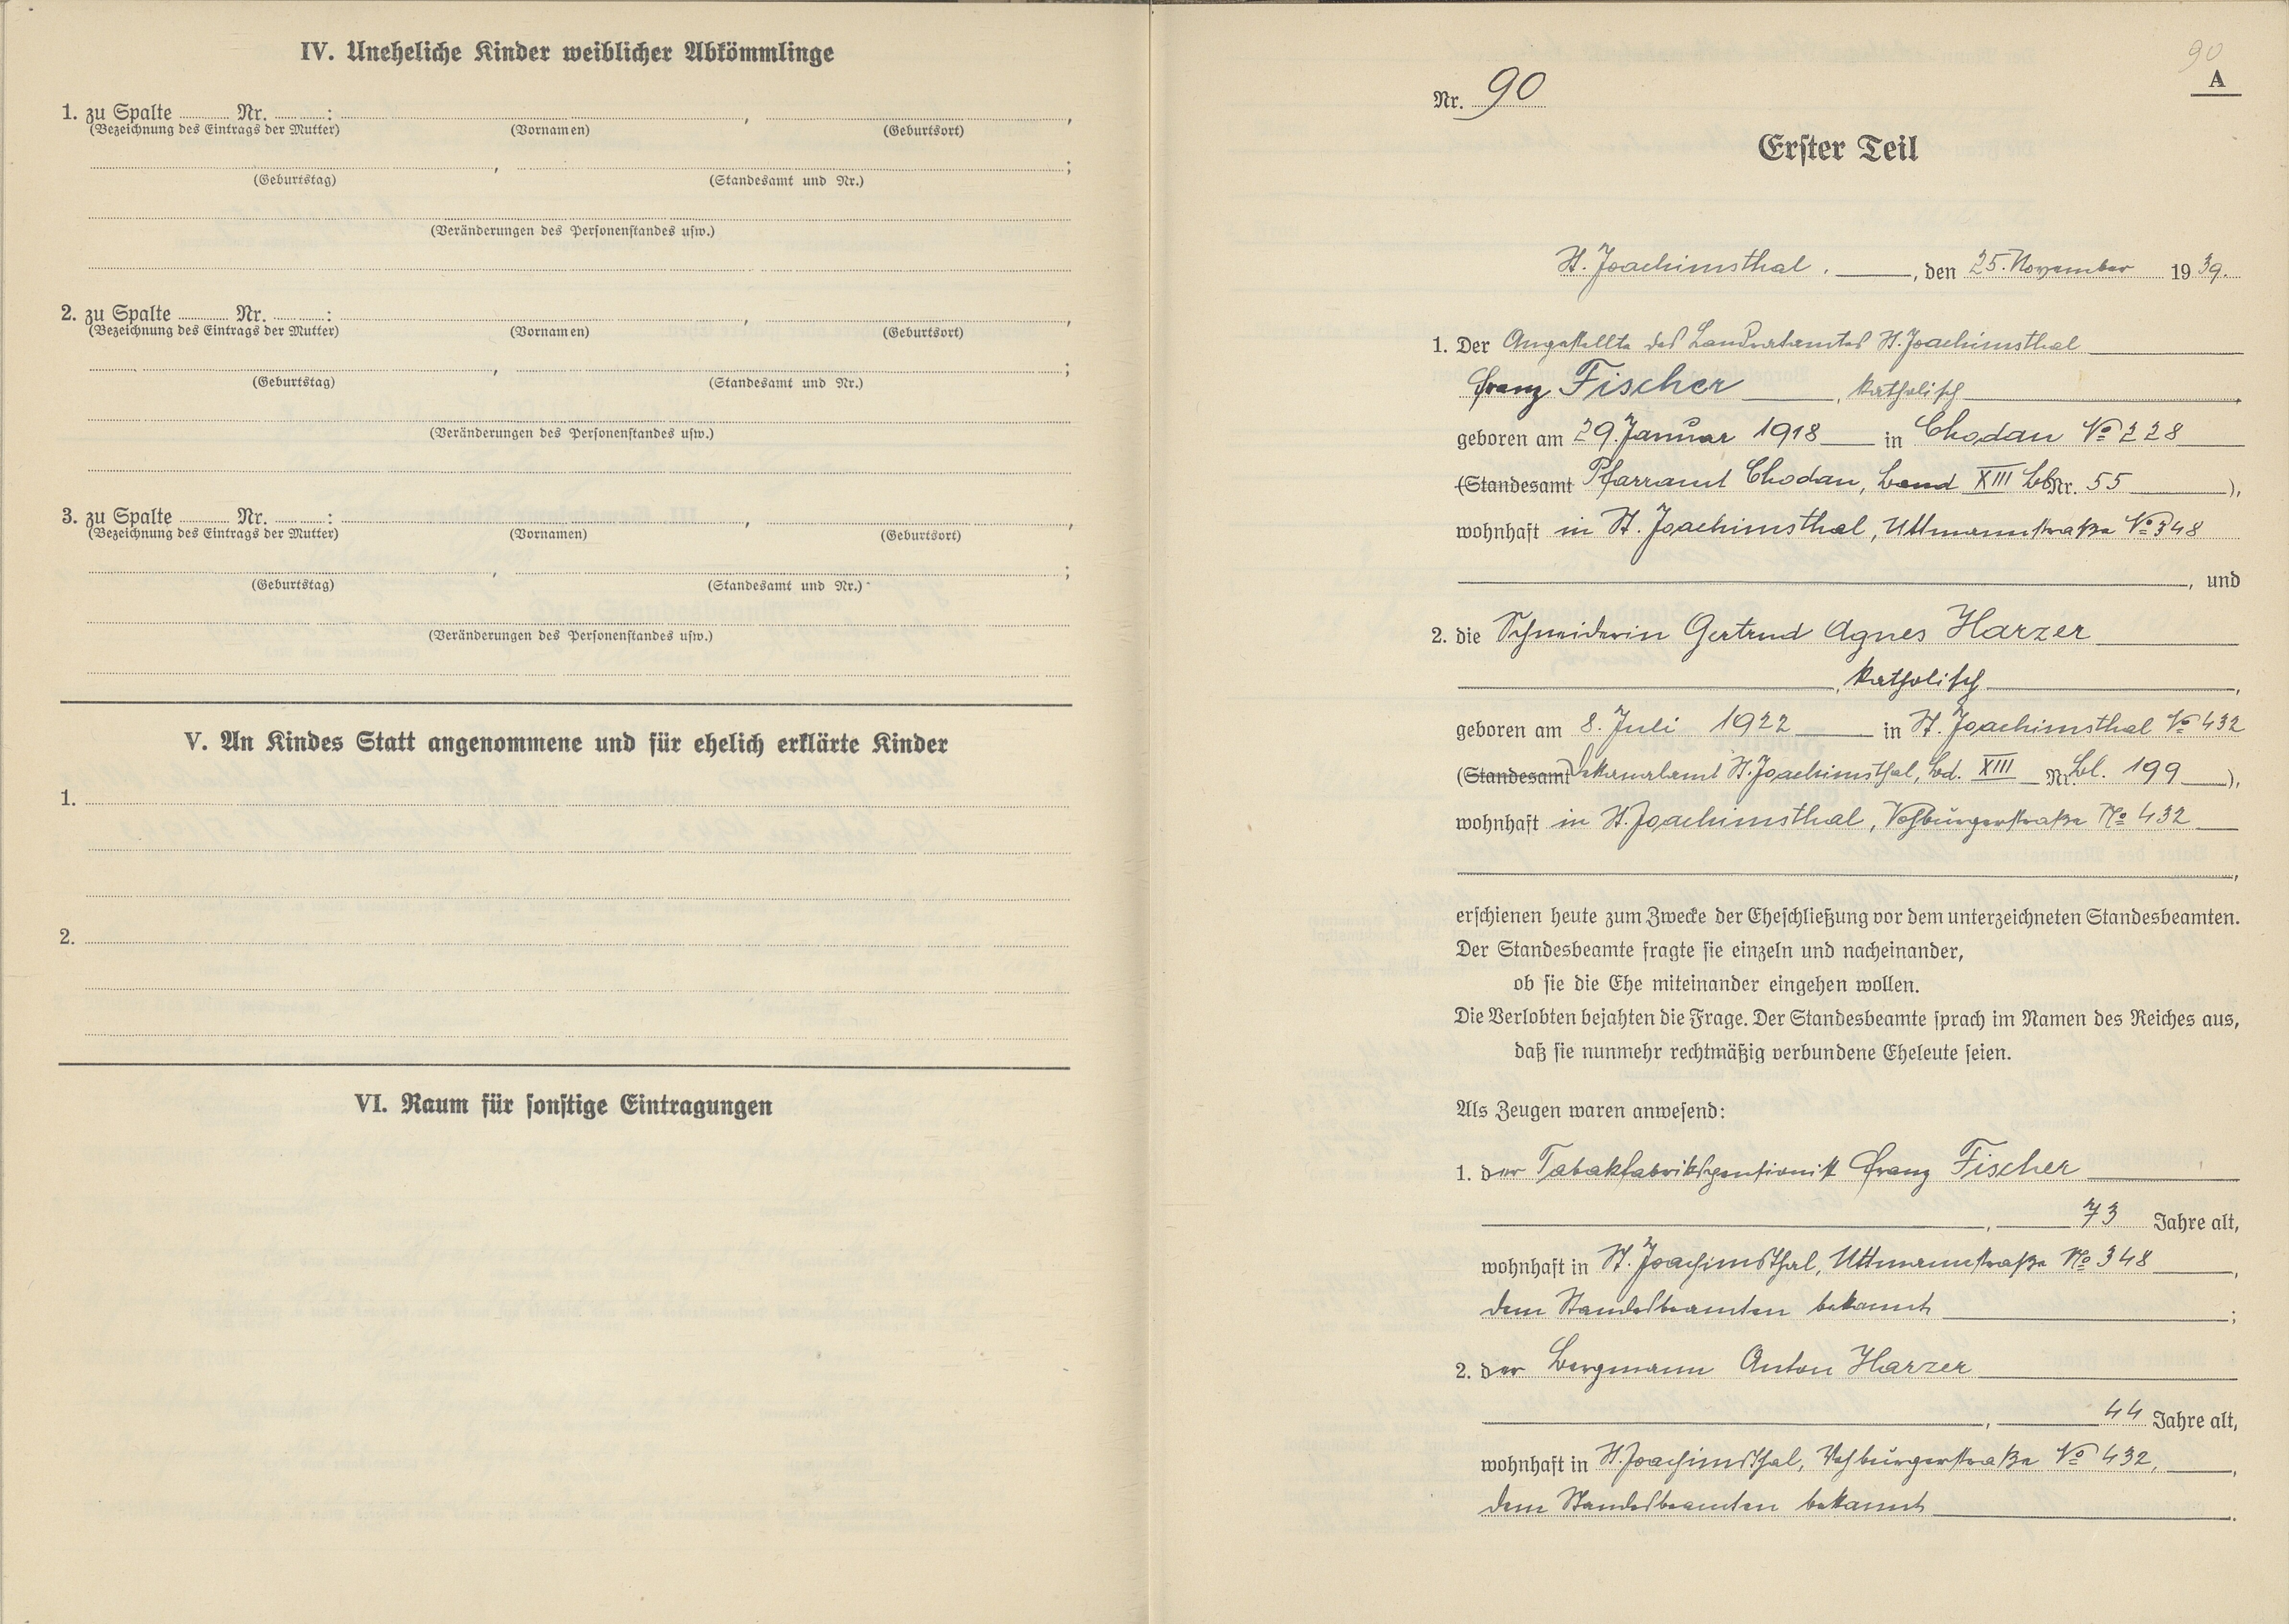 IV. Uneheliche Kinder weiblicher Abkömmlinge
1. zu Spalte ........ Nr. ........:
(Bezeichnung des Eintrags der Mutter) (Vornamen) , (Geburtsort) ,
, ;
(Geburtstag) (Standesamt und Nr.)
(Veränderungen des Personenstandes usw.)
2. zu Spalte ........ Nr. ........:
(Bezeichnung des Eintrags der Mutter) (Vornamen) , (Geburtsort) ,
, ;
(Geburtstag) (Standesamt und Nr.)
(Veränderungen des Personenstandes usw.)
3. zu Spalte ........ Nr. ........:
(Bezeichnung des Eintrags der Mutter) (Vornamen) , (Geburtsort) ,
, ;
(Geburtstag) (Standesamt und Nr.)
(Veränderungen des Personenstandes usw.)
V. An Kindes Statt angenommene und für ehelich erklärte Kinder
1.
2.
VI. Raum für sonstige Eintragungen
90
A
Nr. 90
Erster Teil
St. Joachimsthal, den 25. November 1939.
1. Der Angestellte des Landratamtes St. Joachimsthal
Franz Fischer, katholisch,
geboren am 29. Januar 1918 in Chodau No 228
(Standesamt Pfarramt Chodau, Band XIII Nr. 55),
wohnhaft in St. Joachimsthal, Uttmannstraße No 348
, und
2. die Schneiderin Gertrud Agnes Harzer
, katholisch,
geboren am 8. Juli 1922 in St. Joachimsthal No 432
(Standesamt Dekanalamt St. Joachimsthal, Bd. XIII Nr. Bl. 199),
wohnhaft in St. Joachimsthal, Vohburgerstraße No 432
,
erschienen heute zum Zwecke der Eheschließung vor dem unterzeichneten Standesbeamten.
Der Standesbeamte fragte sie einzeln und nacheinander,
ob sie die Ehe miteinander eingehen wollen.
Die Verlobten bejahten die Frage. Der Standesbeamte sprach im Namen des Reiches aus,
daß sie nunmehr rechtmäßig verbundene Eheleute seien.
Als Zeugen waren anwesend:
1. der Tabakfabrikspensionist Franz Fischer
, 73 Jahre alt,
wohnhaft in St. Joachimsthal, Uttmannstraße No 348,
dem Standesbeamten bekannt;
2. der Bergmann Anton Harzer
, 44 Jahre alt,
wohnhaft in St. Joachimsthal, Vohburgerstraße No 432,
dem Standesbeamten bekannt.